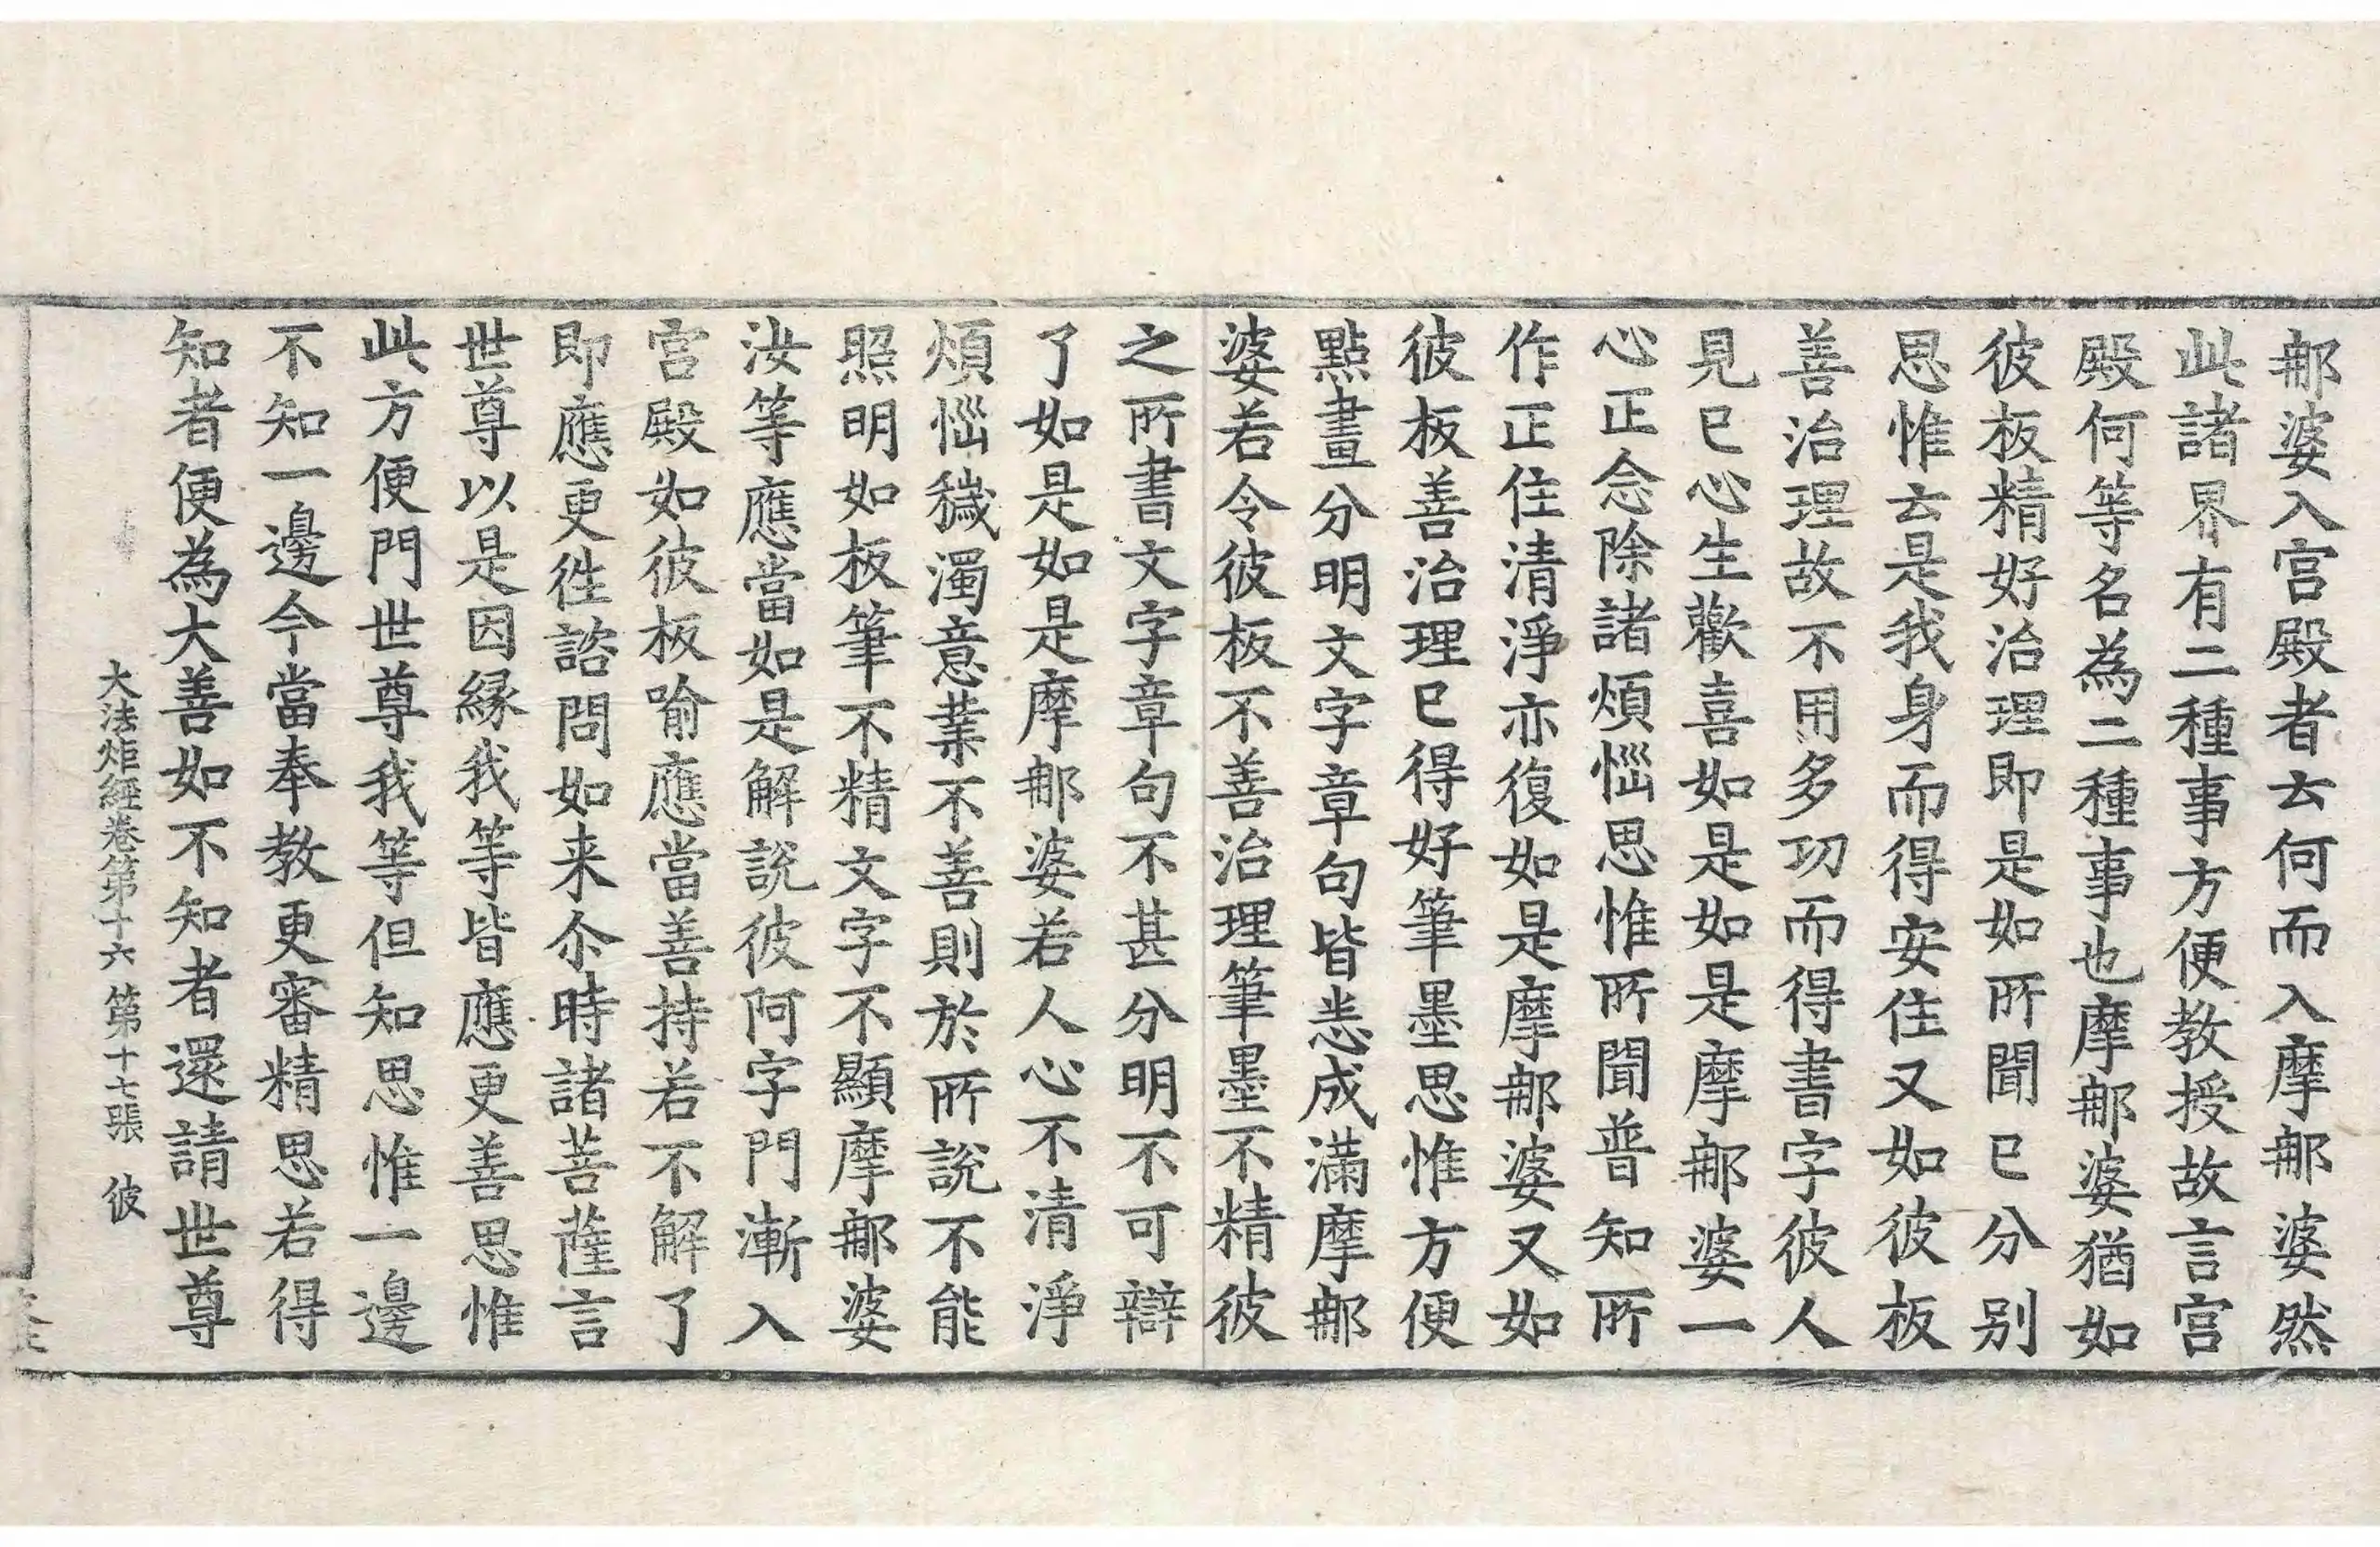 那婆入宮殿者云何而入摩那婆然
此諸界有二種事方便教授故言宮
殿何等名為二種事也摩那婆猶如
彼板精好治理即是如所聞已分别
思惟云是我身而得安住又如彼板
善治理故不用多功而得書字彼人
見已心生歡喜如是如是摩那婆一
心正念除諸煩惱思惟所聞普知所
作正住清淨亦復如是摩那婆又如
彼板善治理已得好筆墨思惟方便
點畫分明文字章句皆悉成滿摩那
婆若令彼板不善治理筆墨不精彼
之所書文字章句不甚分明不可辯
了如是如是摩那婆若人心不清淨
煩惱穢濁意業不善則於所說不能
照明如板筆不精文字不顯摩那婆
汝等應當如是解說彼阿字門漸入
宮殿如彼板喻應當善持若不解了
即應更徃諮問如来尒時諸菩薩言
世尊以是因縁我等皆應更善思惟
此方便門世尊我等但知思惟一邊
不知一邊今當奉教更審精思若得
知者便為大善如不知者還請世尊
大法炬經卷第十六 第十七張 彼